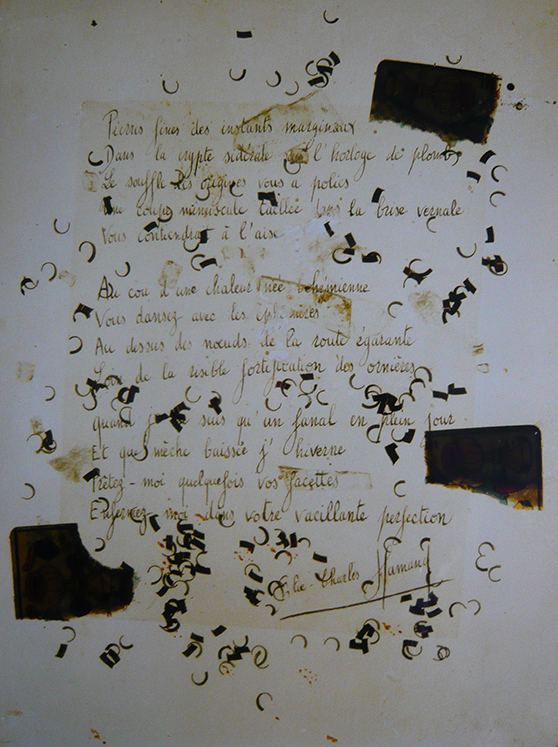 Pierres fines des instants marginaux
Dans la crypte sidérale où l'horloge de plomb
Le souffle des origines vous a polies
Une coupe minuscule taillée dans la brise vernale
Vous contiendrait à l'aise
Au cou d'une chaleur née bohémienne
Vous dansez avec les éphémères
Au dessus des nœuds de la route égarante
Loin de la risible fortification des ornières
quand je ne suis qu'un fanal en plein jour
Et que mèche baissée j'hiverne
Prêtez-moi quelquefois vos facettes
Enfermez-moi dans votre vacillante perfection
Elie-Charles Flamand